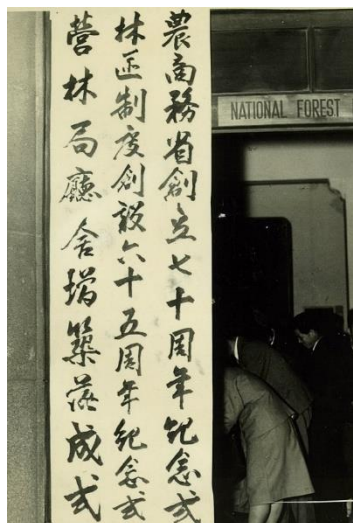 農商務省創立七十周年紀念式
林区制度創設六十五周年紀念式
営林局廳舎増築落成式
NATIONAL FOREST